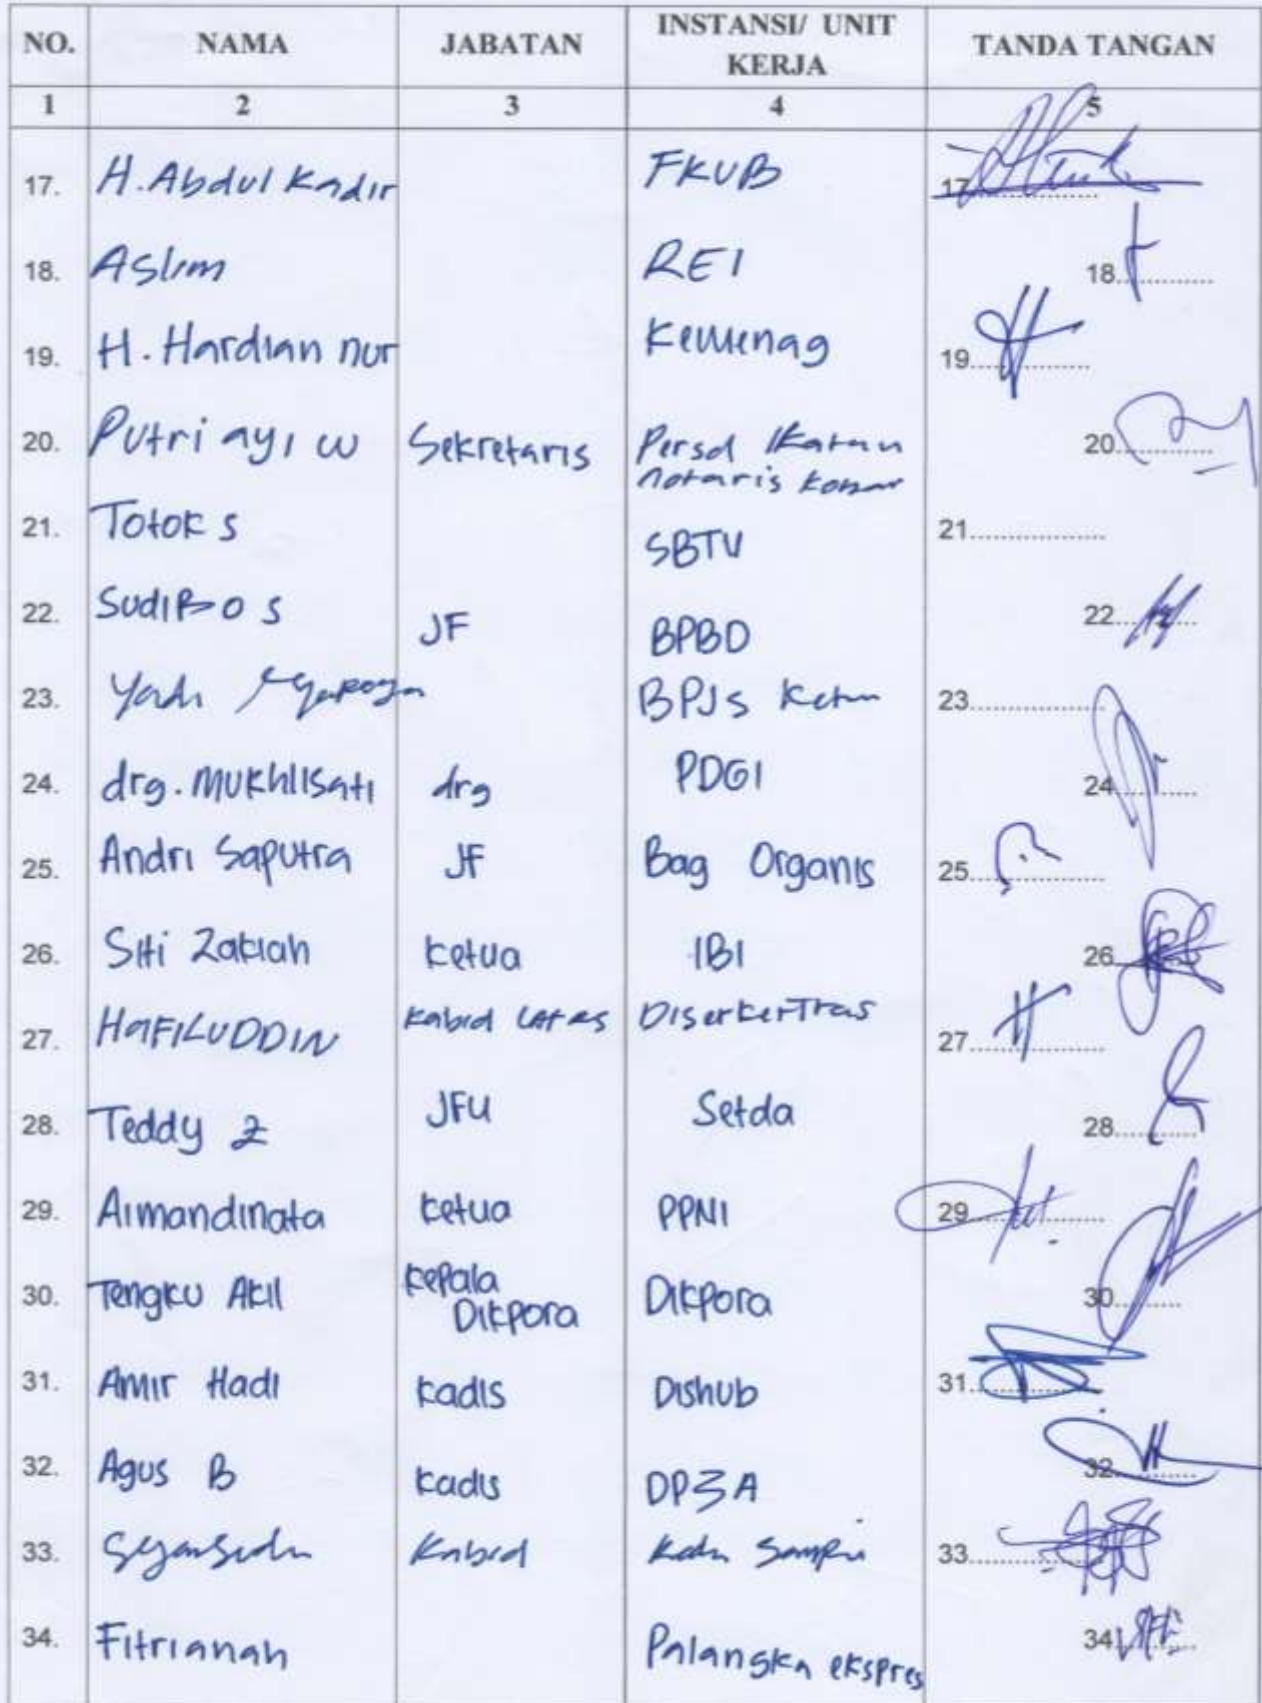 NO. NAMA JABATAN INSTANSI/ UNIT KERJA TANDA TANGAN
1 2 3 4 5
17. H. Abdul Kadir FKUB 17
18. Aslim REI 18
19. H. Hardian nur Kemenag 19
20. Putri ayi w Sekretaris Persd Ikatan notaris Kobar 20
21. Totok S SBTV 21
22. SudiBo S JF BPBD 22
23. Yadi BPJS 23
24. drg. Mukhlisati drg PDGI 24
25. Andri Saputra JF Bag Organis 25
26. Siti Zakiah Ketua IBI 26
27. HAFILUDDIN Kabid Lattas DiserkerTras 27
28. Teddy Z JFU Setda 28
29. Aimandinata Ketua PPNI 29
30. Tengku Akil Kepala Dikpora Dikpora 30
31. Amir Hadi Kadis Dishub 31
32. Agus B Kadis DP3A 32
33. Kabid 33
34. Fitrianah Palangka ekspres 34